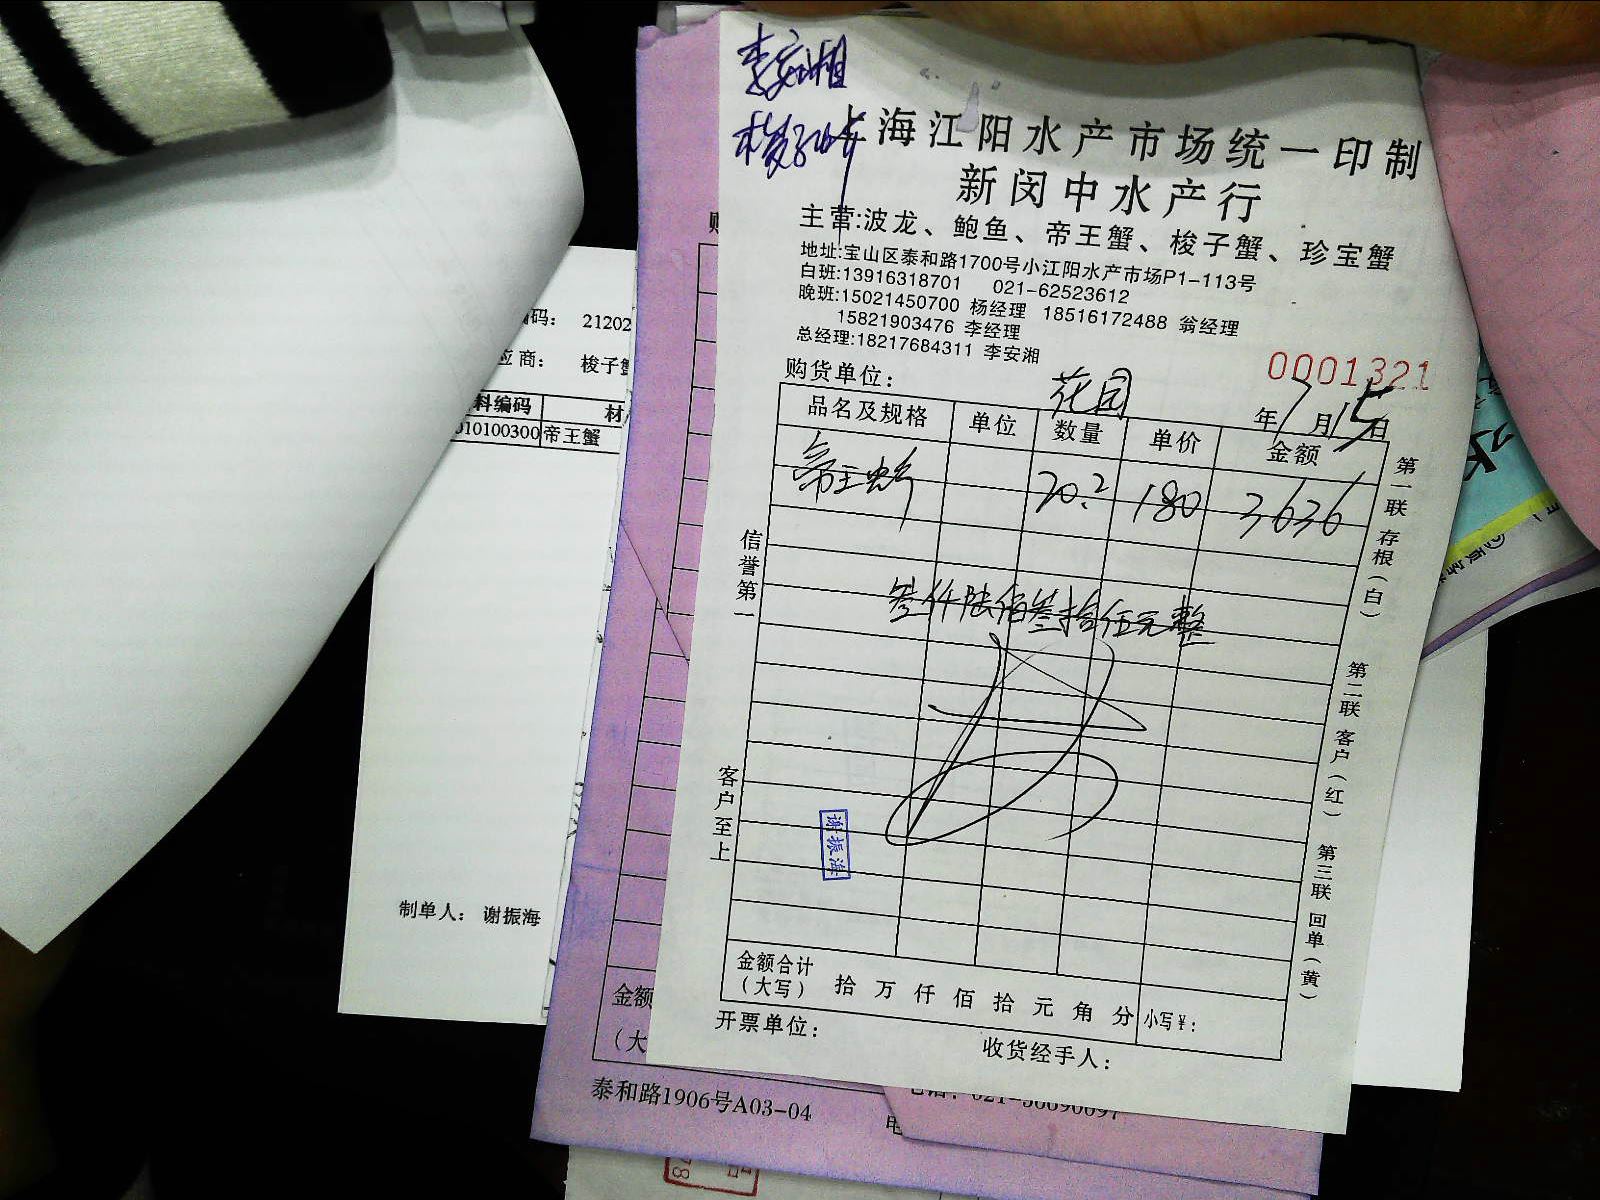 李安湘
梭子蟹
上海江阳水产市场统一印制
新闵中水产行
主营:波龙、鲍鱼、帝王蟹、梭子蟹、珍宝蟹
地址:宝山区泰和路1700号小江阳水产市场P1-113号
白班:13916318701 021-62523612
晚班:15021450700 杨经理 18516172488 翁经理
15821903476 李经理
总经理:18217684311 李安湘
0001321
购货单位: 花园
年7月15日
品名及规格 单位 数量 单价 金额
帝王蟹 20.2 180 3636
叁仟陆佰叁拾伍元整
信誉第一
客户至上
谢振海
第一联 存根(白)
第二联 客户(红)
第三联 回单(黄)
金额合计
(大写) 拾 万 仟 佰 拾 元 角 分 小写¥:
开票单位:
收货经手人:
编码: 21202
应商: 梭子蟹
料编码 材
010100300 帝王蟹
制单人: 谢振海
金额
(大
泰和路1906号A03-04
电